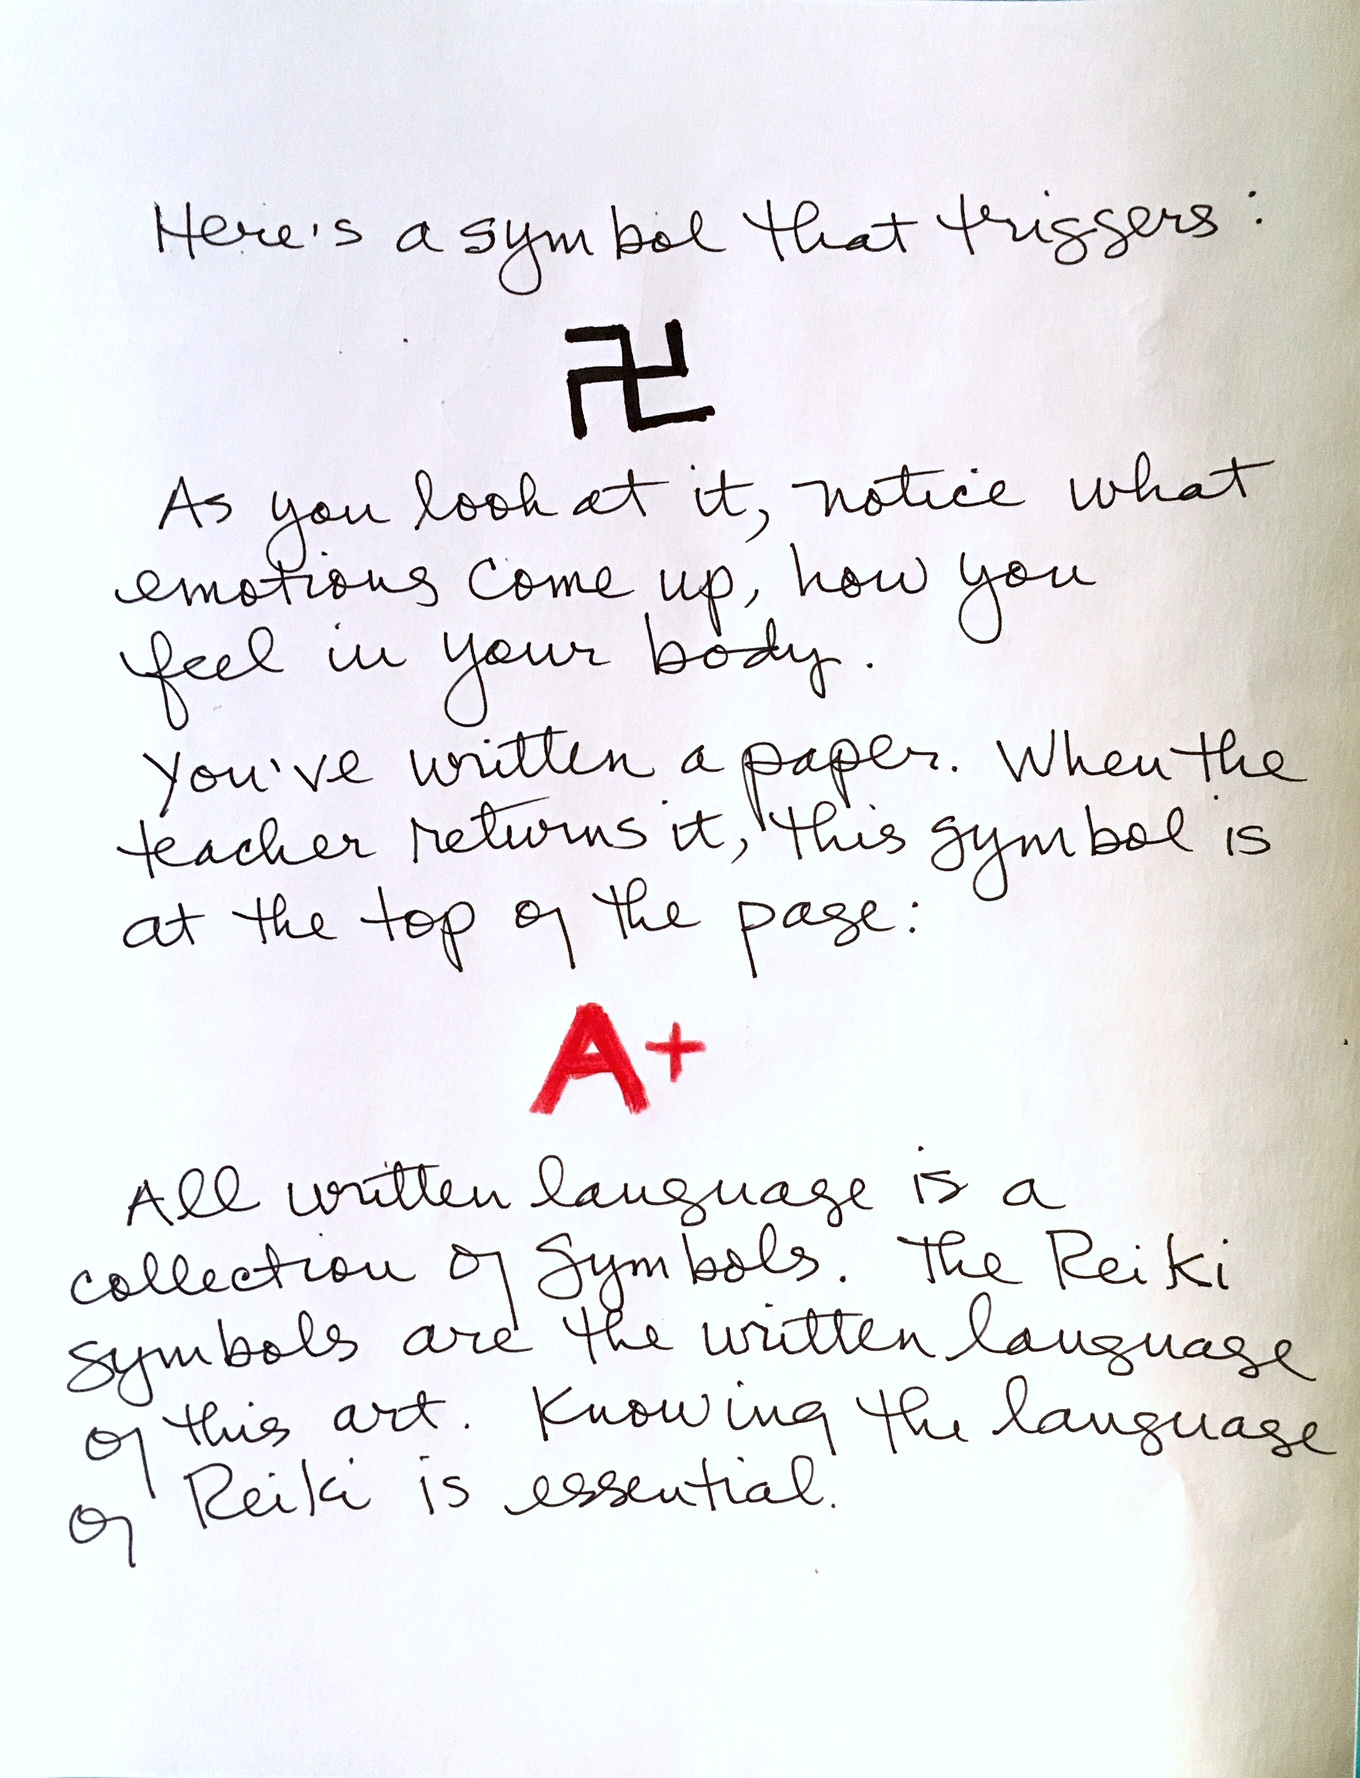 Here's a symbol that triggers:
卍
As you look at it, notice what
emotions come up, how you
feel in your body.
You've written a paper. When the
teacher returns it, this symbol is
at the top of the page:
A+
All written language is a
collection of symbols. The Reiki
symbols are the written language
of this art. Knowing the language
of Reiki is essential.